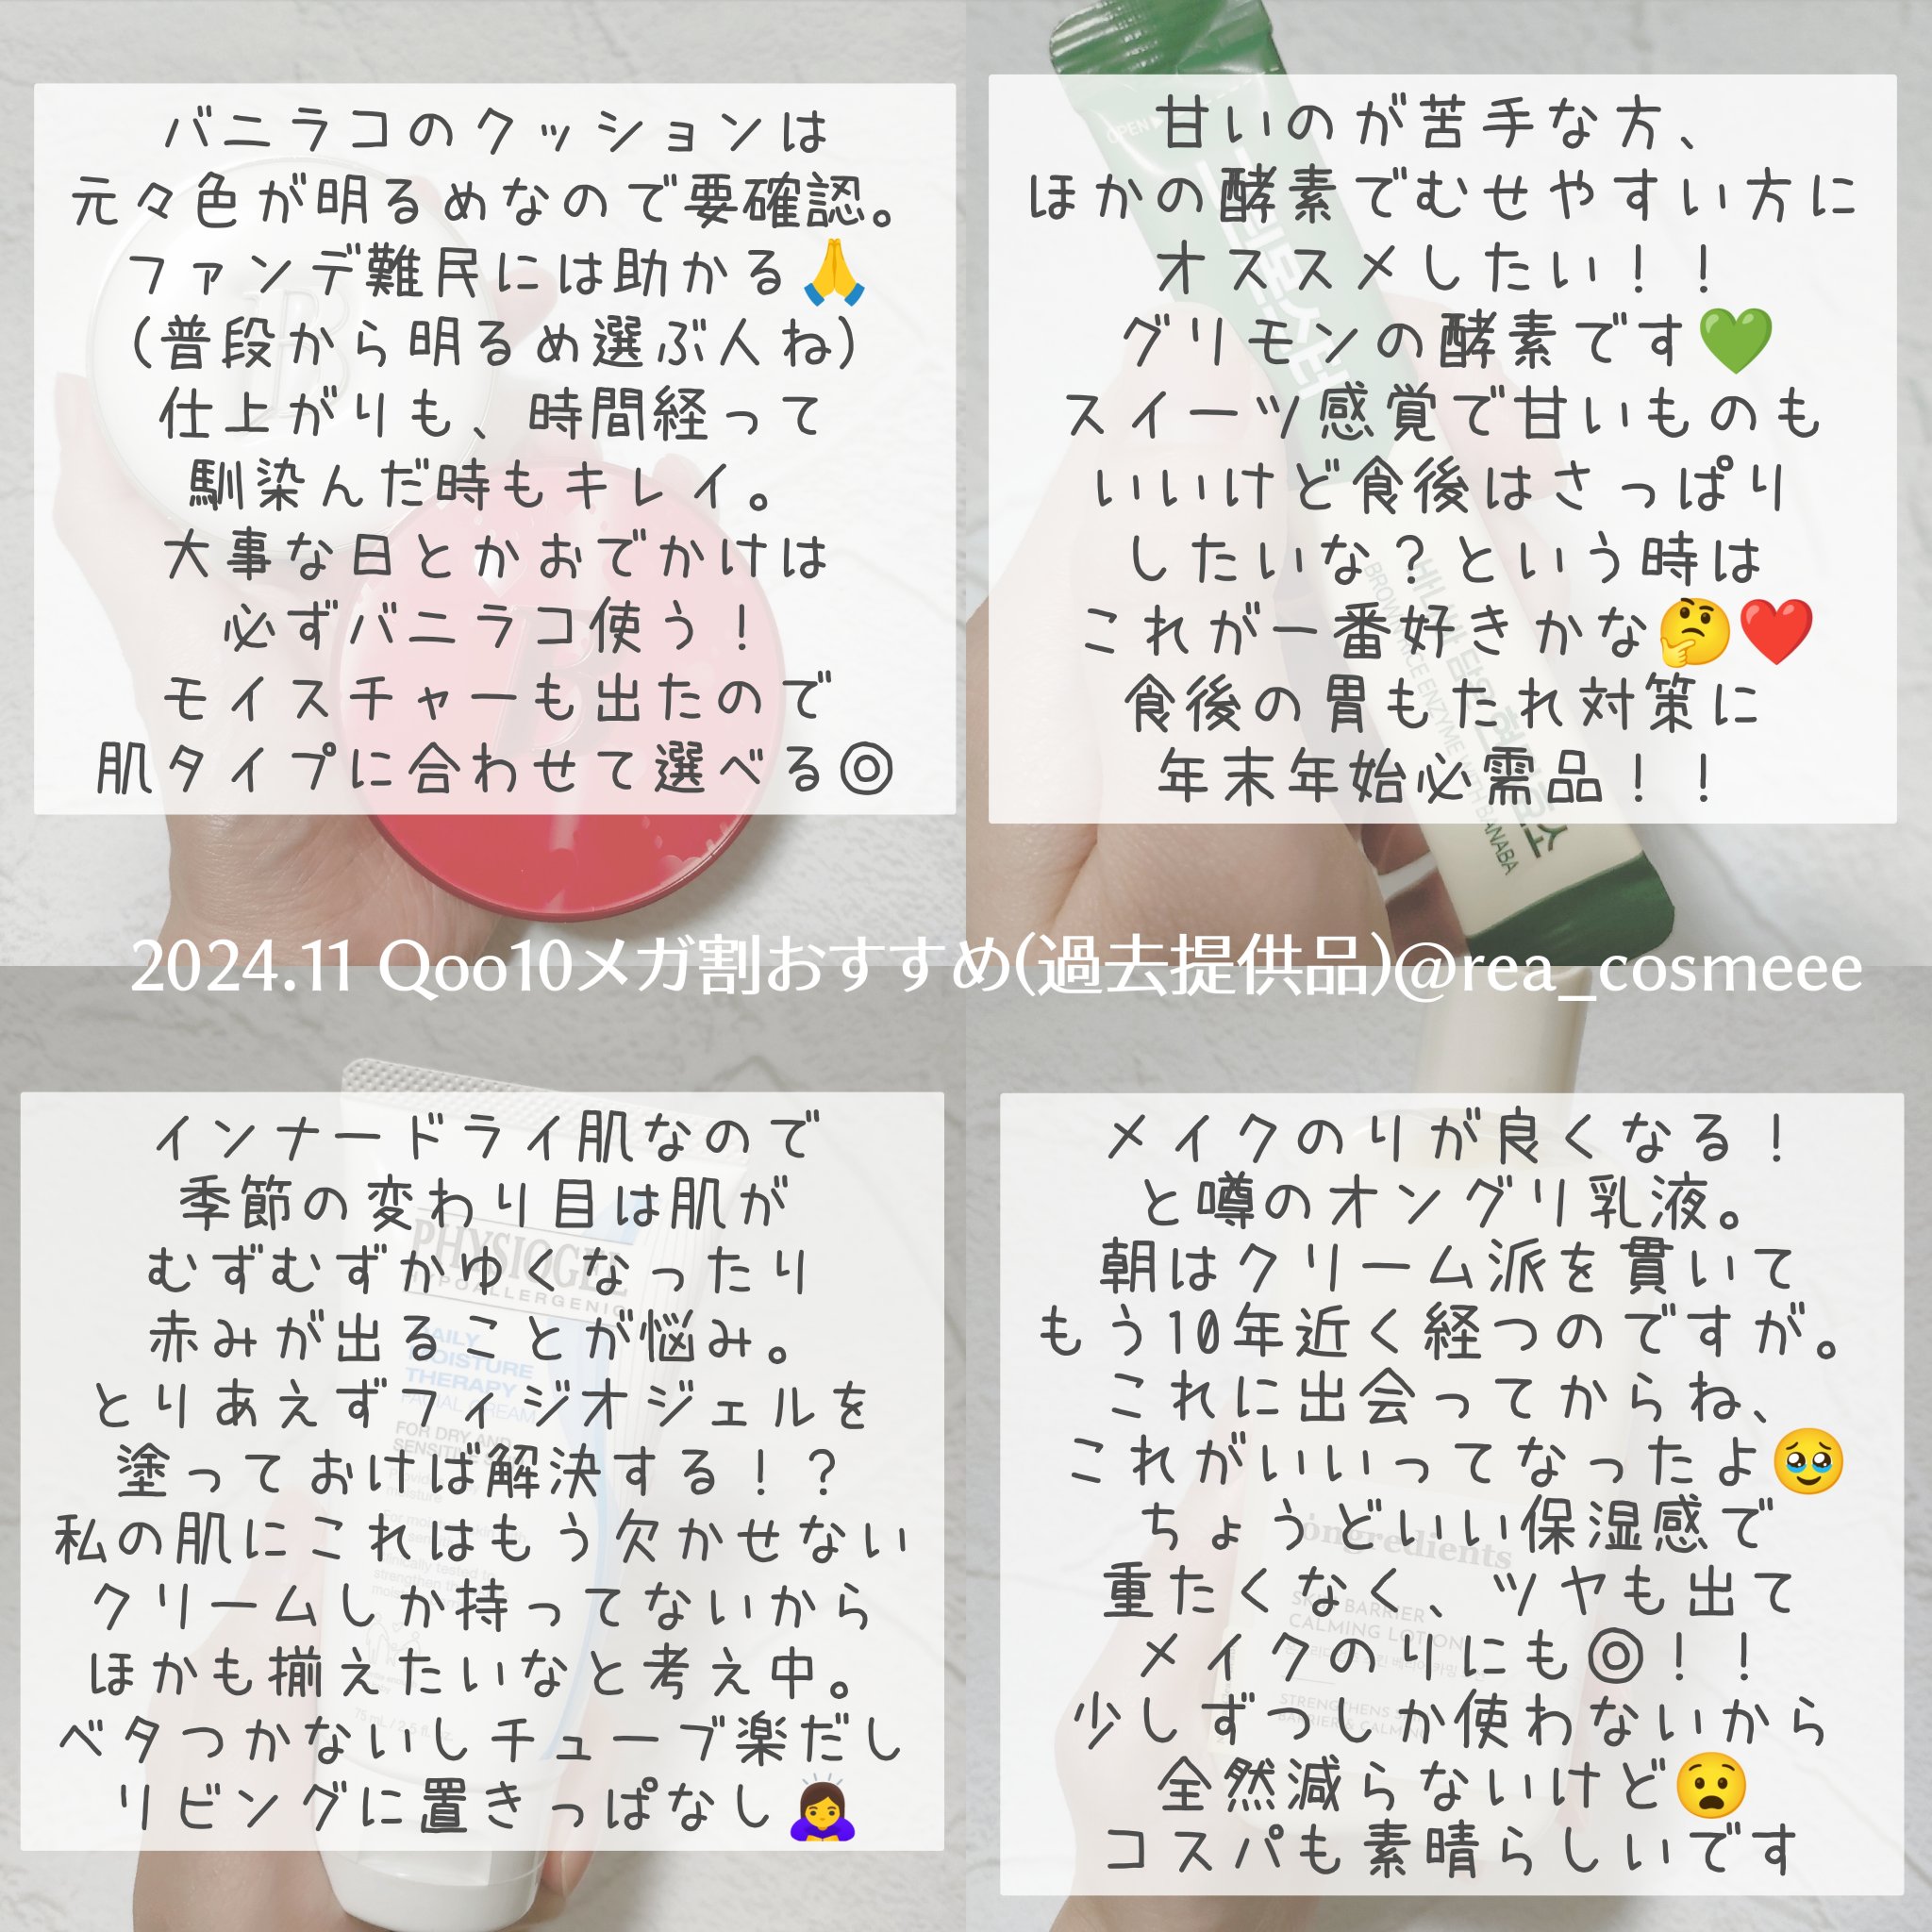 バニラコのクッションは
元々色が明るめなので要確認。
ファンデ難民には助かる🙏
(普段から明るめ選ぶ人ね)
仕上がりも、時間経って
馴染んだ時もキレイ。
大事な日とかおでかけは
必ずバニラコ使う！
モイスチャーも出たので
肌タイプに合わせて選べる◎
甘いのが苦手な方、
ほかの酵素でむせやすい方に
オススメしたい！！
グリモンの酵素です💚
スイーツ感覚で甘いものも
いいけど食後はさっぱり
したいな？という時は
これが一番好きかな🤔❤️
食後の胃もたれ対策に
年末年始必需品！！
OPEN
BROWN RICE ENZYME WITH BANABA
2024.11 Qoo10メガ割おすすめ(過去提供品)@rea_cosmeee
インナードライ肌なので
季節の変わり目は肌が
むずむずかゆくなったり
赤みが出ることが悩み。
とりあえずフィジオジェルを
塗っておけば解決する！？
私の肌にこれはもう欠かせない
クリームしか持ってないから
ほかも揃えたいなと考え中。
ベタつかないしチューブ楽だし
リビングに置きっぱなし🙇‍♀️
PHYSIOGEL
HYPOALLERGENIC
DAILY
MOISTURE
THERAPY
FACIAL CREAM
FOR DRY AND
SENSITIVE
メイクのりが良くなる！
と噂のオングリ乳液。
朝はクリーム派を貫いて
もう10年近く経つのですが。
これに出会ってからね、
これがいいってなったよ🥹
ちょうどいい保湿感で
重たくなく、ツヤも出て
メイクのりにも◎！！
少しずつしか使わないから
全然減らないけど😧
コスパも素晴らしいです
ongredients
SKIN BARRIER
CALMING LOTION
STRENGTHENS SKIN
BARRIER & CALMING